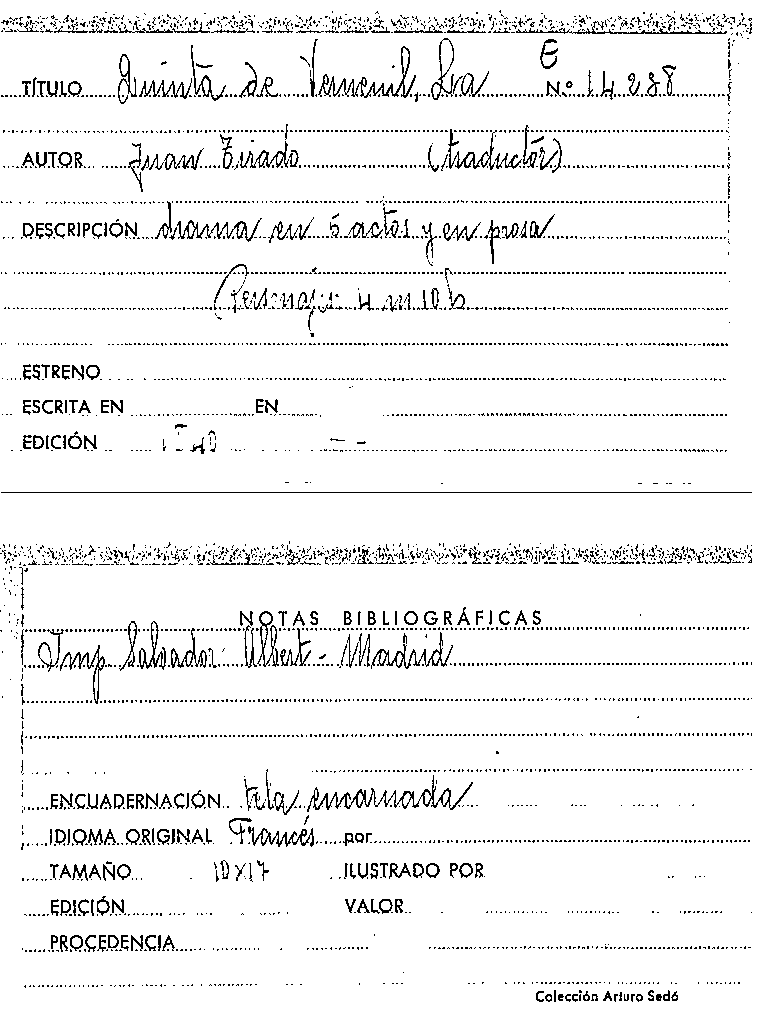 E
TÍTULO Quinta de Verneuil, La Nº 14288
AUTOR Juan Tirado (traductor)
DESCRIPCIÓN drama en 5 actos y en prosa
Personajes 4 m 10 h
ESTRENO
ESCRITA EN EN
EDICIÓN
NOTAS BIBLIOGRÁFICAS
Imp Salvador Albert - Madrid
ENCUADERNACIÓN tela encarnada
IDIOMA ORIGINAL Francés por
TAMAÑO 10x17 ILUSTRADO POR
EDICIÓN VALOR
PROCEDENCIA
Colección Arturo Sedó